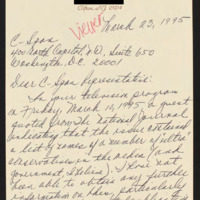 Viewer
March 23, 1995
C-Span
400 North Capitol, NW, Suite 650
Washington, D.C. 20001
Dear C-Span Representative:
In your television program
on Friday, March 10, 1995, a guest
quoted from The National Journal
indicating that the issue contained
a list of names of a number of ultra-
conservatives in the media (and
government, I believe). I have not
been able to obtain any further
information on this, particularly